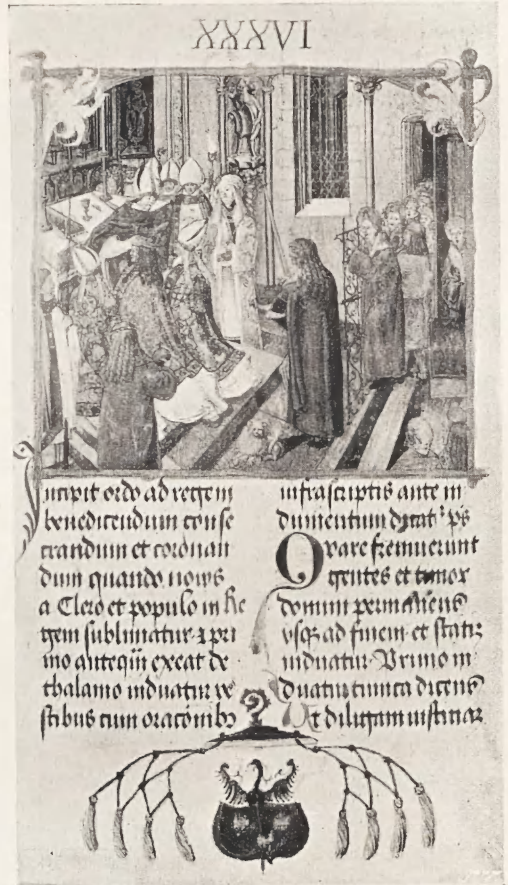 XXXVI
Incipit ordo ad regem
benedicendum conse
crandum et coronan
dum quando novus
a Clero et populo in Re
gem sublimatur ⁊ pri
mo anteqm̄ exeat de
thalamo induatur ve
stibus cum oraconibꝫ
infrascriptis ante in
dumentum dicat² ps
Quare fremuerunt
gentes et timor
domini permanens
vsqꝫ ad finem et statiꝫ
induatur Primo in
duatur tunica dicens
Ut diligam iustitiaꝫ